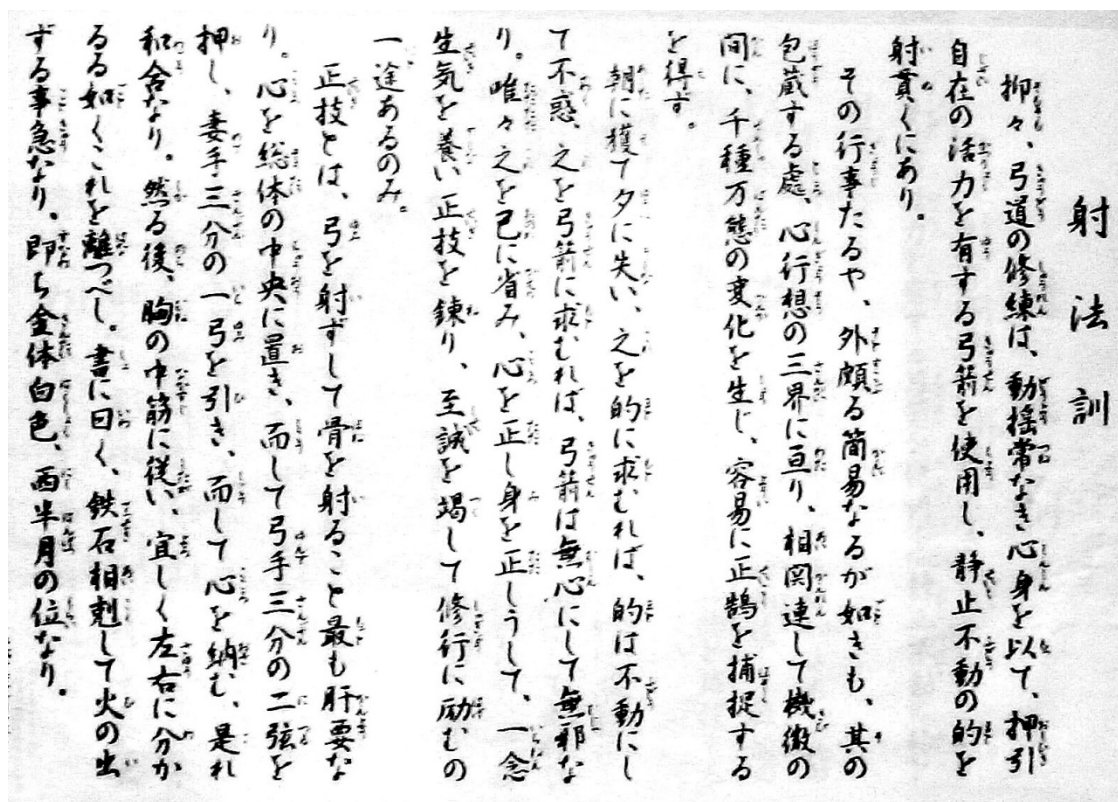 射法訓
抑々、弓道の修練は、動揺常なき心身を以て、押引
自在の活力を有する弓箭を使用し、静止不動の的を
射貫くにあり。
その行事たるや、外頗る簡易なるが如きも、其の
包蔵する處、心行想の三界に亘り、相関連して機微の
間に、千種万態の変化を生じ、容易に正鵠を捕捉する
を得ず。
朝に獲て夕に失い、之を的に求むれば、的は不動にし
て不惑、之を弓箭に求むれば、弓箭は無心にして無邪な
り。唯々之を己に省み、心を正し身を正しうして、一念
生気を養い正技を錬り、至誠を竭して修行に励むの
一途あるのみ。
正技とは、弓を射ずして骨を射ること最も肝要な
り。心を総体の中央に置き、而して弓手三分の二弦を
押し、妻手三分の一弓を引き、而して心を納む、是れ
和合なり。然る後、胸の中筋に従い、宜しく左右に分か
るる如くこれを離つべし。書に曰く、鉄石相剋して火の出
ずる事急なり。即ち金体白色、西半月の位なり。